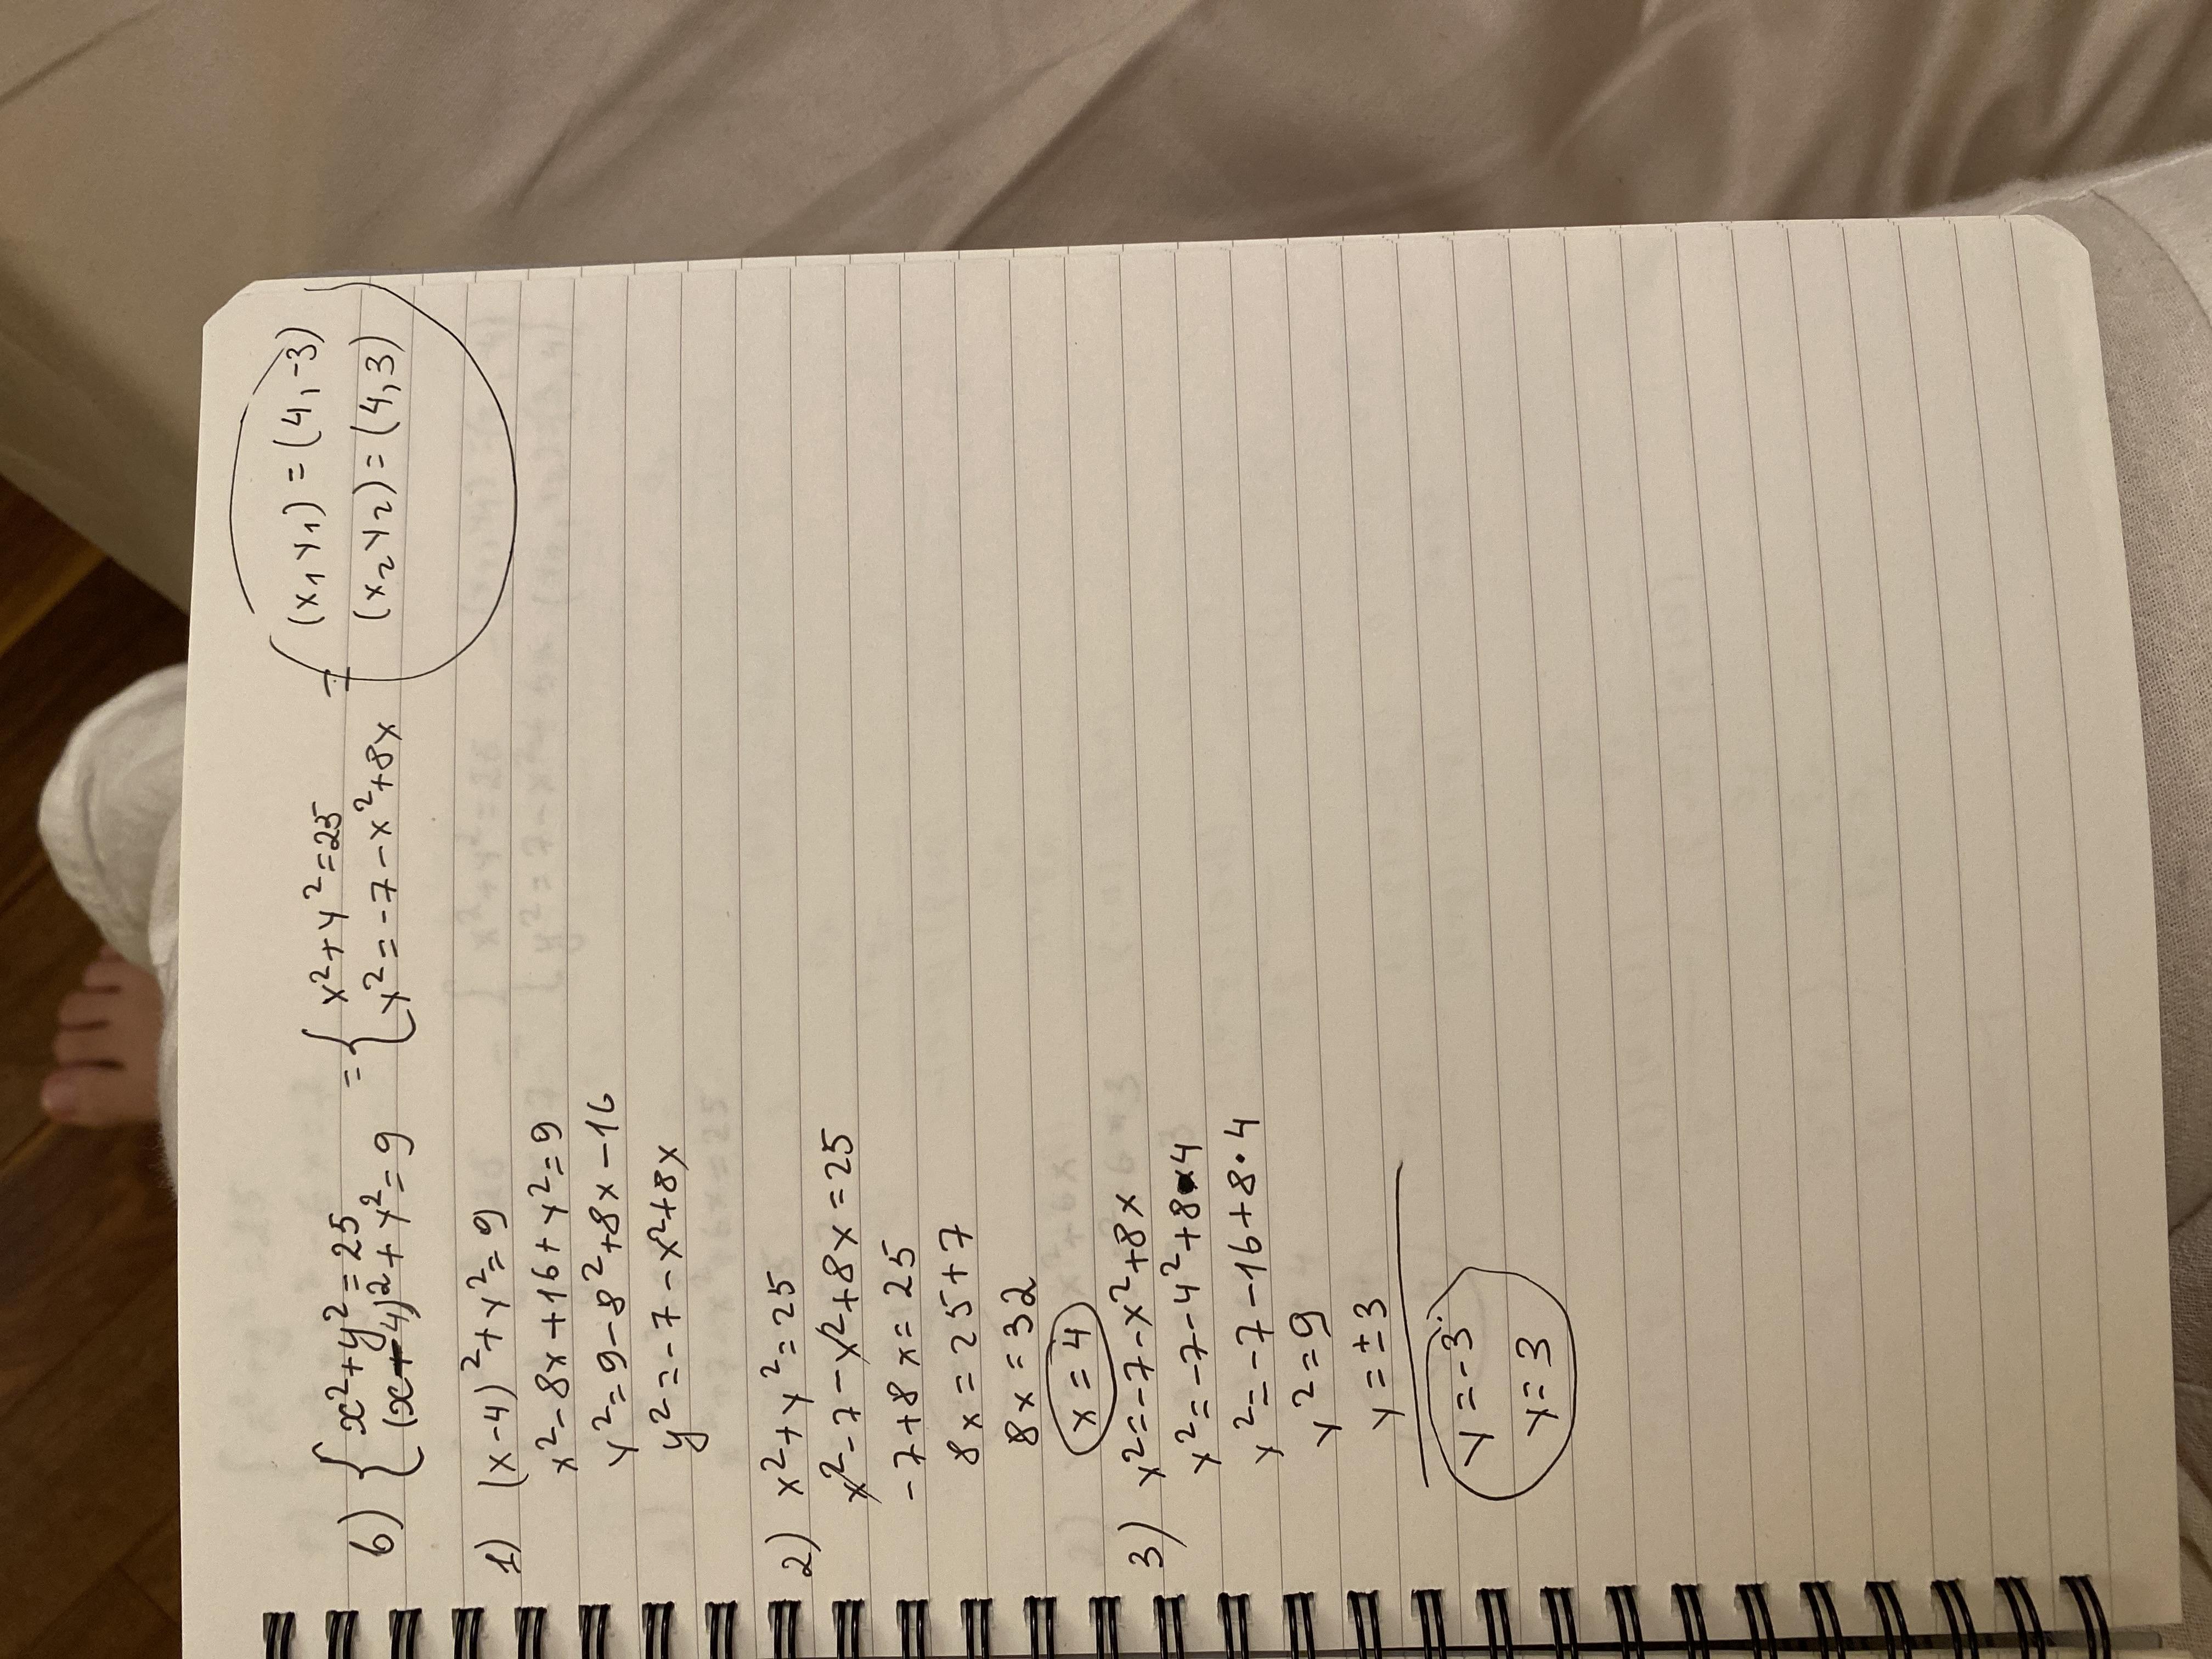 6) { x²+y²=25 = { x²+y²=25 = (x₁y₁)=(4,-3)
(x-4)²+y²=9 y²=-7-x²+8x (x₂y₂)=(4,3)
1) (x-4)²+y²=9
x²-8x+16+y²=9
y²=9-8²+8x-16
y²=-7-x²+8x
2) x²+y²=25
x²-7-x²+8x=25
-7+8x=25
8x=25+7
8x=32
x=4
3) y²=-7-x²+8x
y²=-7-4²+8·4
y²=-7-16+8·4
y²=9
y=±3
y=-3
y=3